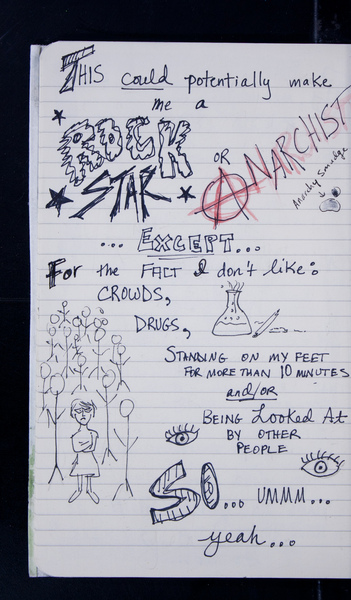 THIS could potentially make
me a
ROCK
STAR
OR
ANARCHIST
Anarchy Smudge
.... EXCEPT...
For the FACT I don't like:
CROWDS,
DRUGS,
STANDING ON MY FEET
FOR MORE THAN 10 MINUTES
and/OR
BEING Looked At
BY OTHER
PEOPLE
SO... UMMM...
yeah...